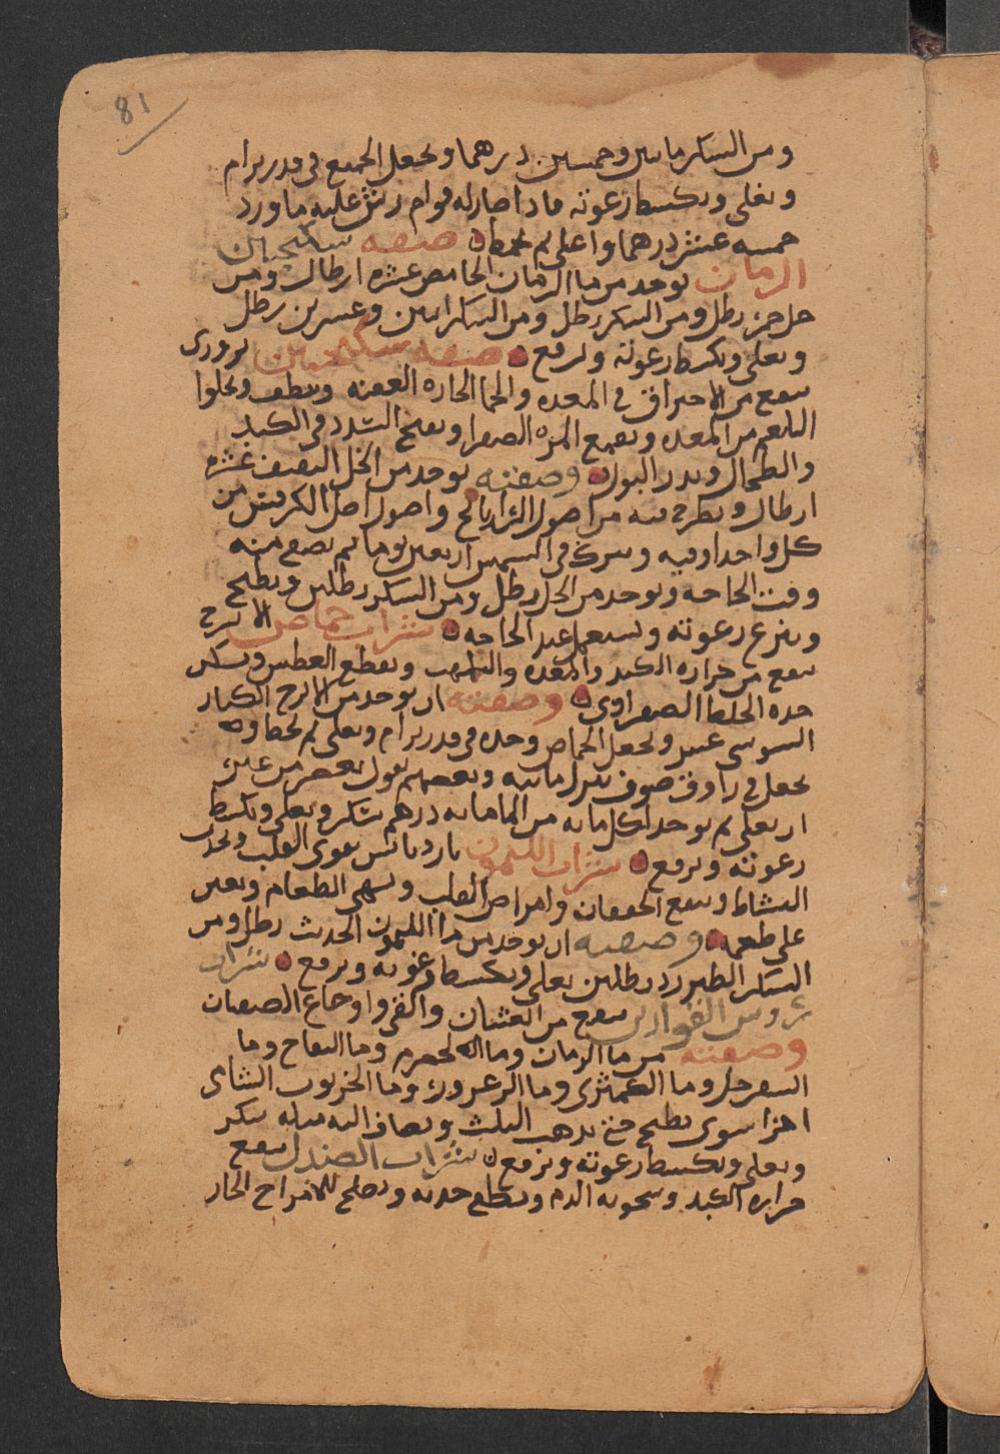 81
ومن السكر مايتين وخمسين درهما ويجعل الجميع في قدر برام
ويغلى ويكشط رغوته فاذا صار له قوام رش عليه ماورد
خمسه عشر درهما واغلي ثم تحط صفه سكنجبين
الرمان يوخد من ما الرمان الحامض عشره ارطال ومن
خل خمر رطل ومن السكر رطل ومن السكر اثنين وعشرين رطل
ويغلى ويكشط رغوته ويرفع صفه سكنجبين بزورى
ينفع من الاحتراق في المعده والحما الحاره العفنه ويلطف ويجلوا
البلغم من المعده ويقمع المره الصفرا ويفتح السدد في الكبد
والطحال ويدر البول وصفته يوخد من الخل الثقيف عشره
ارطال ويطرح فيه من اصول الرازيانج واصول اصل الكرفس من
كل واحد اوقيه ويترك في الشمس اربعين يوما ثم يصفى منه
وقت الحاجه ويوخد من الخل رطل ومن السكر رطلين ويطبخ
وينزع رغوته ويستعمل عند الحاجه شراب حماض الاترج
ينفع من حراره الكبد والمعده والتلهب ويقطع العطش ويسكن
حده الخلط الصفراوى وصفته ان يوخد من الاترج الكبار
السوسى عشر ويجعل الحماض وحده في قدر برام ويغلى ثم يحط و
يجعل في راووق صوف ينزل مائيه وبعضهم يقول يعصر من غير
ان يغلى ثم يوخد لكل مايه من الما مايه درهم سكر ويغلى ويكشط
رغوته ويرفع شراب الليمون بارد يابس يقوى القلب ويحدث
النشاط وينفع الخفقان وامراض القلب ويشهى الطعام ويعين
على طعمه وصفته ان يوخد من ما الليمون الحديث رطل ومن
السكر الطبرزد رطلين يغلى ويكشط رغوته ويرفع شراب
عروس الفوادين ينفع من الغشيان والقى واوجاع الصفات
وصفته من ما الرمان وما الحصرم وما التفاح وما
السفرجل وما الكمثرى وما الزعرور وما الخرنوب الشامى
اجزا سوى يطبخ حتى يذهب الثلث ويضاف اليه مثله سكر
ويغلى ويكشط رغوته ويرفع شراب الصندل ينفع
حراره الكبد وسخونه الدم ويطفي حدته ويصلح للامزاج الحار